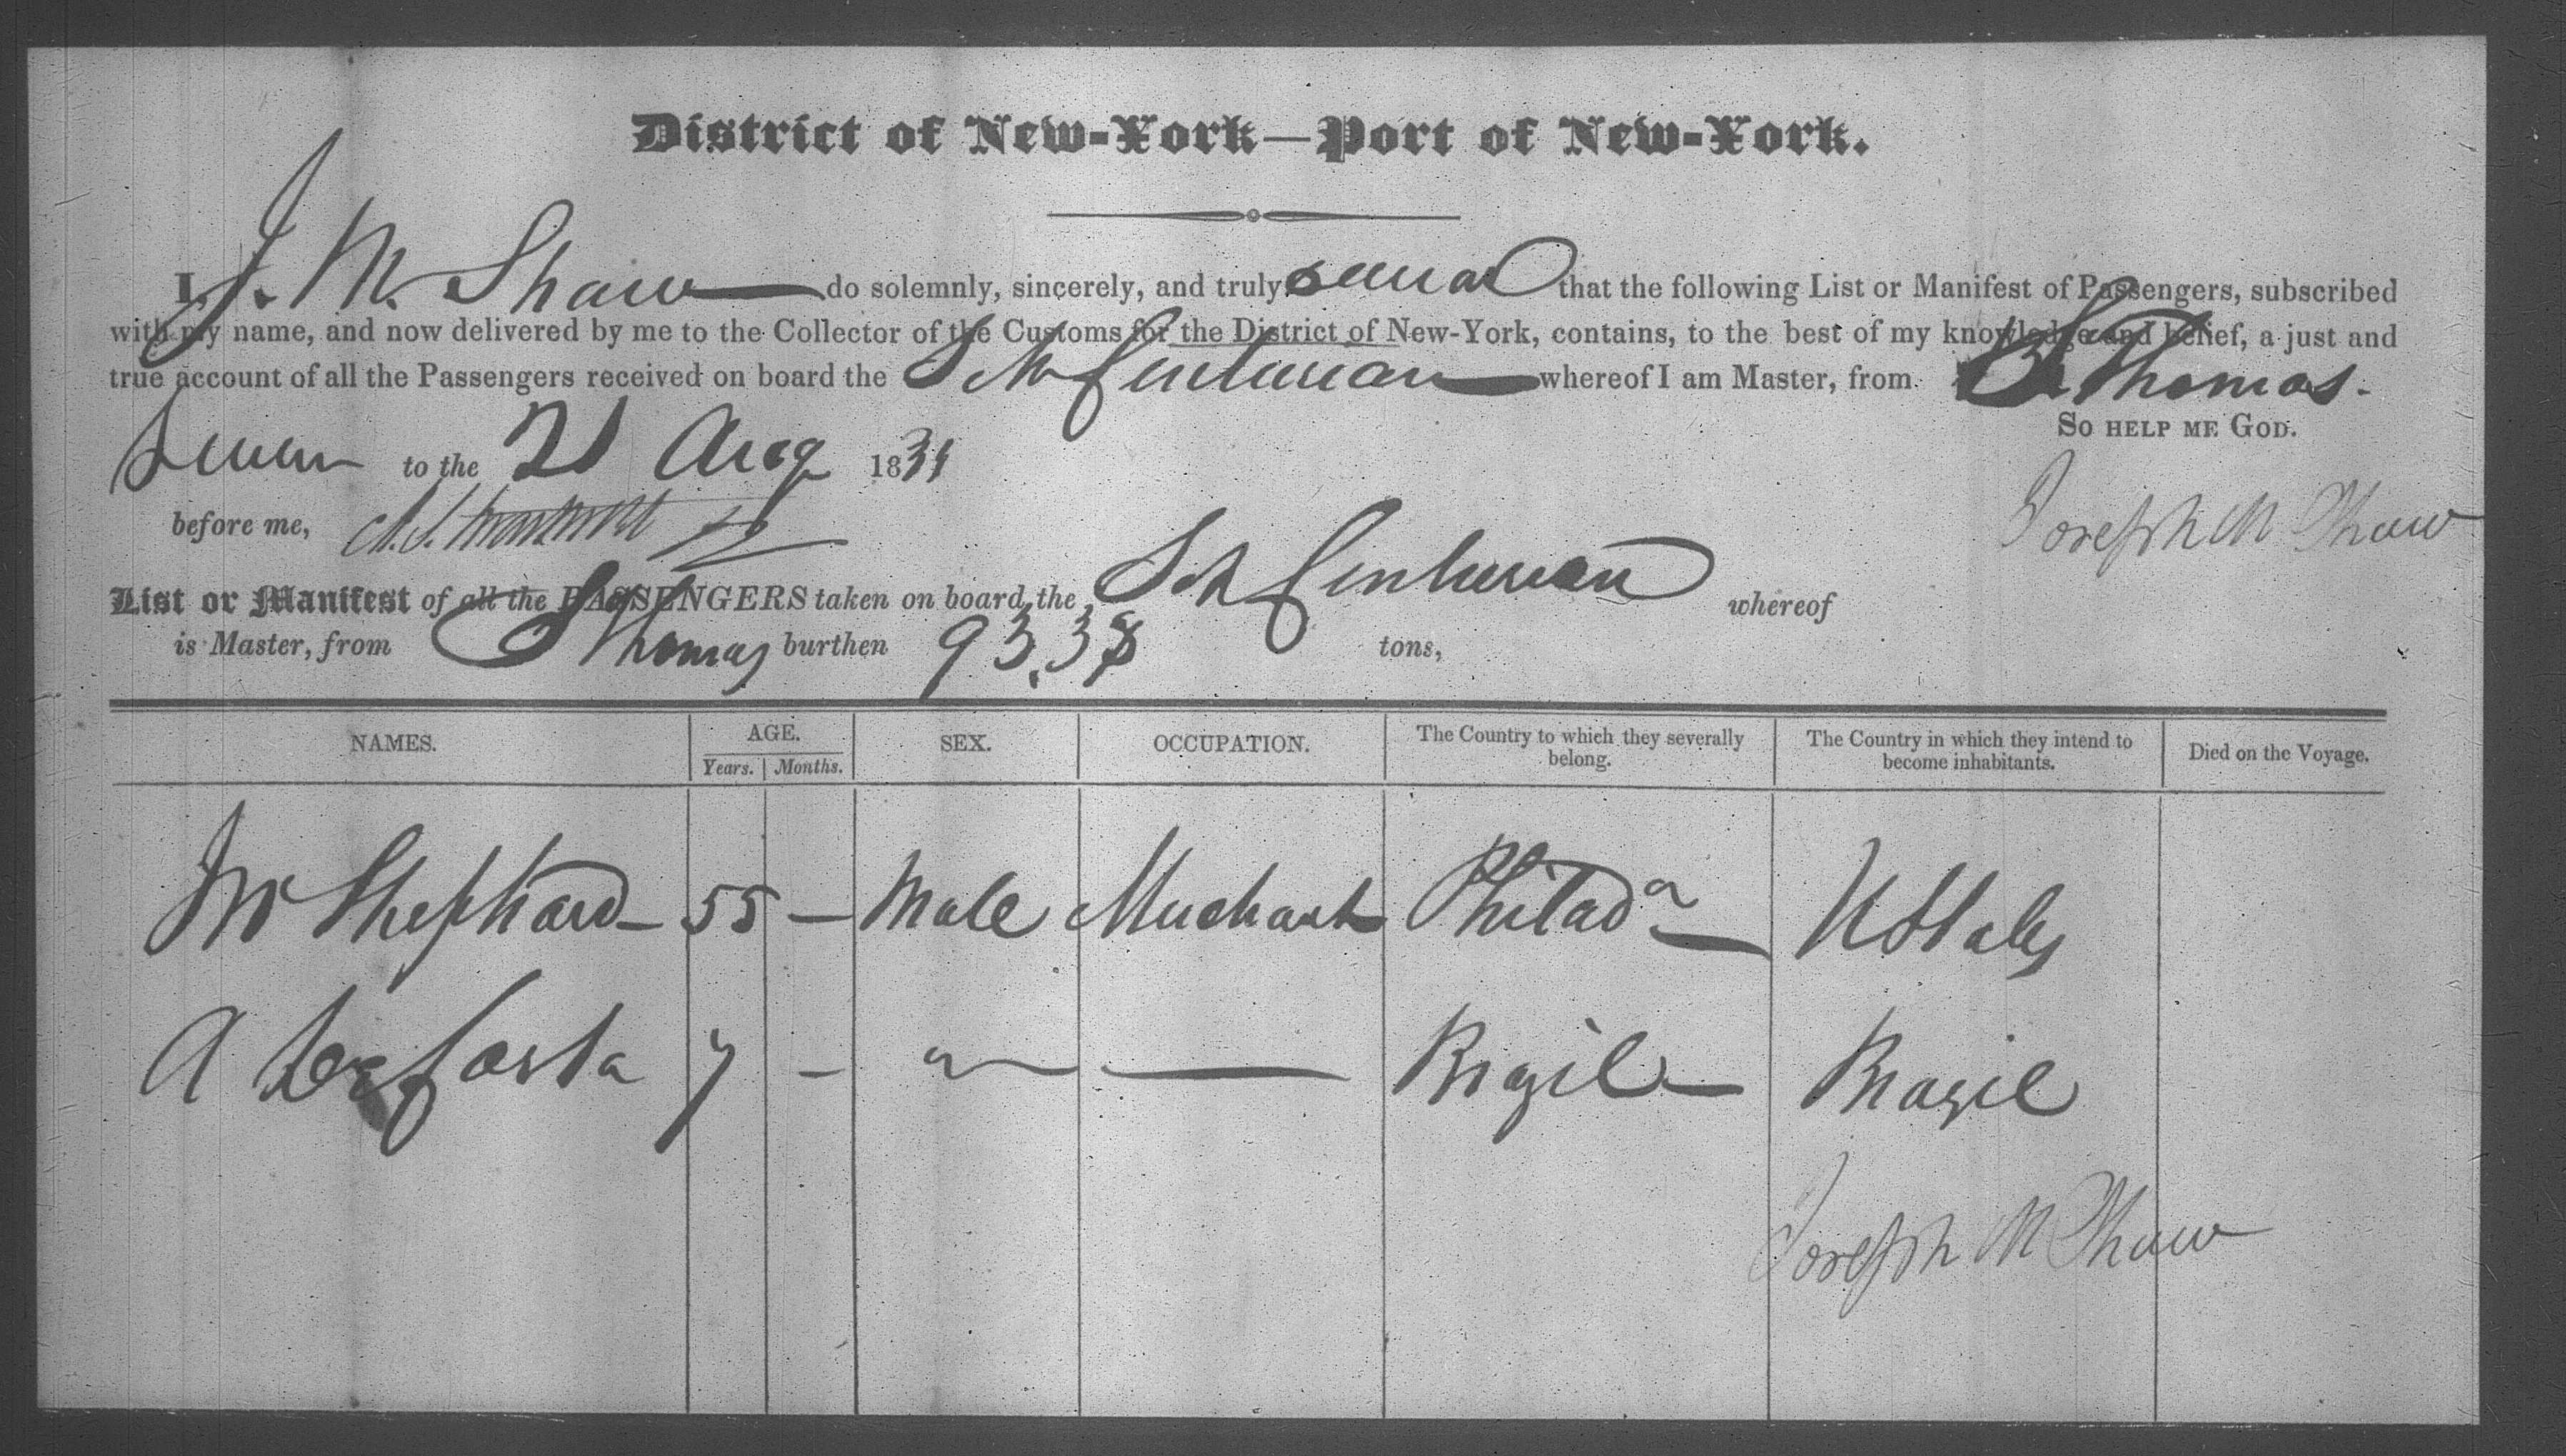 District of New-York—Port of New-York.
I, J. M. Shaw do solemnly, sincerely, and truly swear that the following List or Manifest of Passengers, subscribed
with my name, and now delivered by me to the Collector of the Customs for the District of New-York, contains, to the best of my knowledge and belief, a just and
true account of all the Passengers received on board the Sch Centurian whereof I am Master, from St Thomas.
So help me God.
Sworn to the 21 Aug 1831
before me,
Joseph M Shaw
List or Manifest of all the PASSENGERS taken on board the Sch Centurian whereof
is Master, from St Thomas burthen 93.38 tons,
NAMES. AGE. Years. Months. SEX. OCCUPATION. The Country to which they severally belong. The Country in which they intend to become inhabitants. Died on the Voyage.
Mr Shephard 55 — Male Merchant Philada UStates
A Dacosta 7 — " — Brazil Brazil
Joseph M Shaw